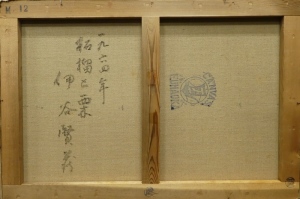 一九六四年
柘榴と栗
伊谷賢蔵